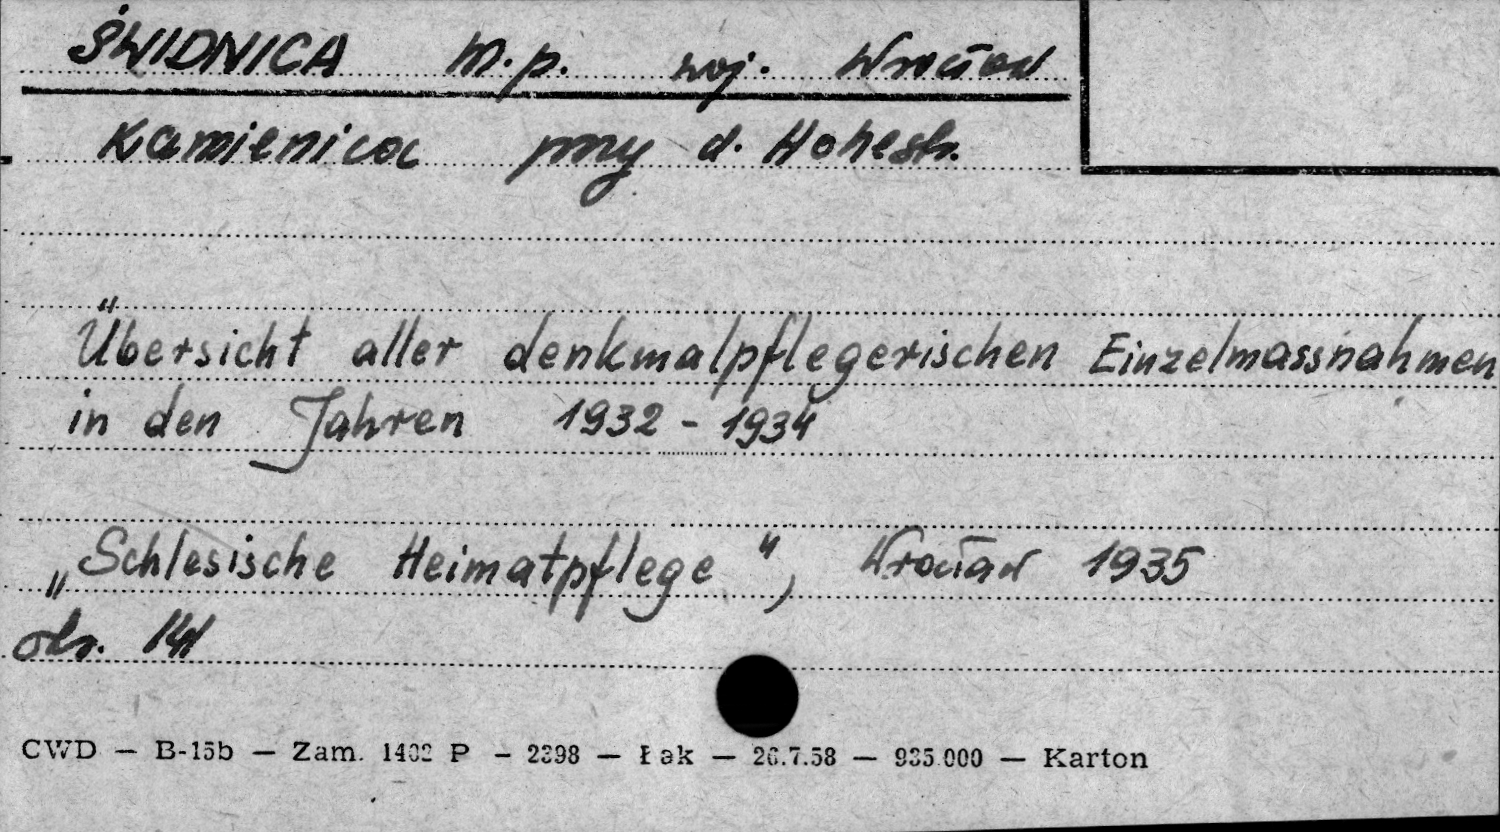 ŚWIDNICA m.p. woj. Wrocław
Kamienica przy d. Hohestr.
Übersicht aller denkmalpflegerischen Einzelmassnahmen
in den Jahren 1932 - 1934
„Schlesische Heimatpflege", Wrocław 1935
str. 141
CWD — B-15b — Zam. 1402 P — 2398 — Łak — 26.7.58 — 935.000 — Karton